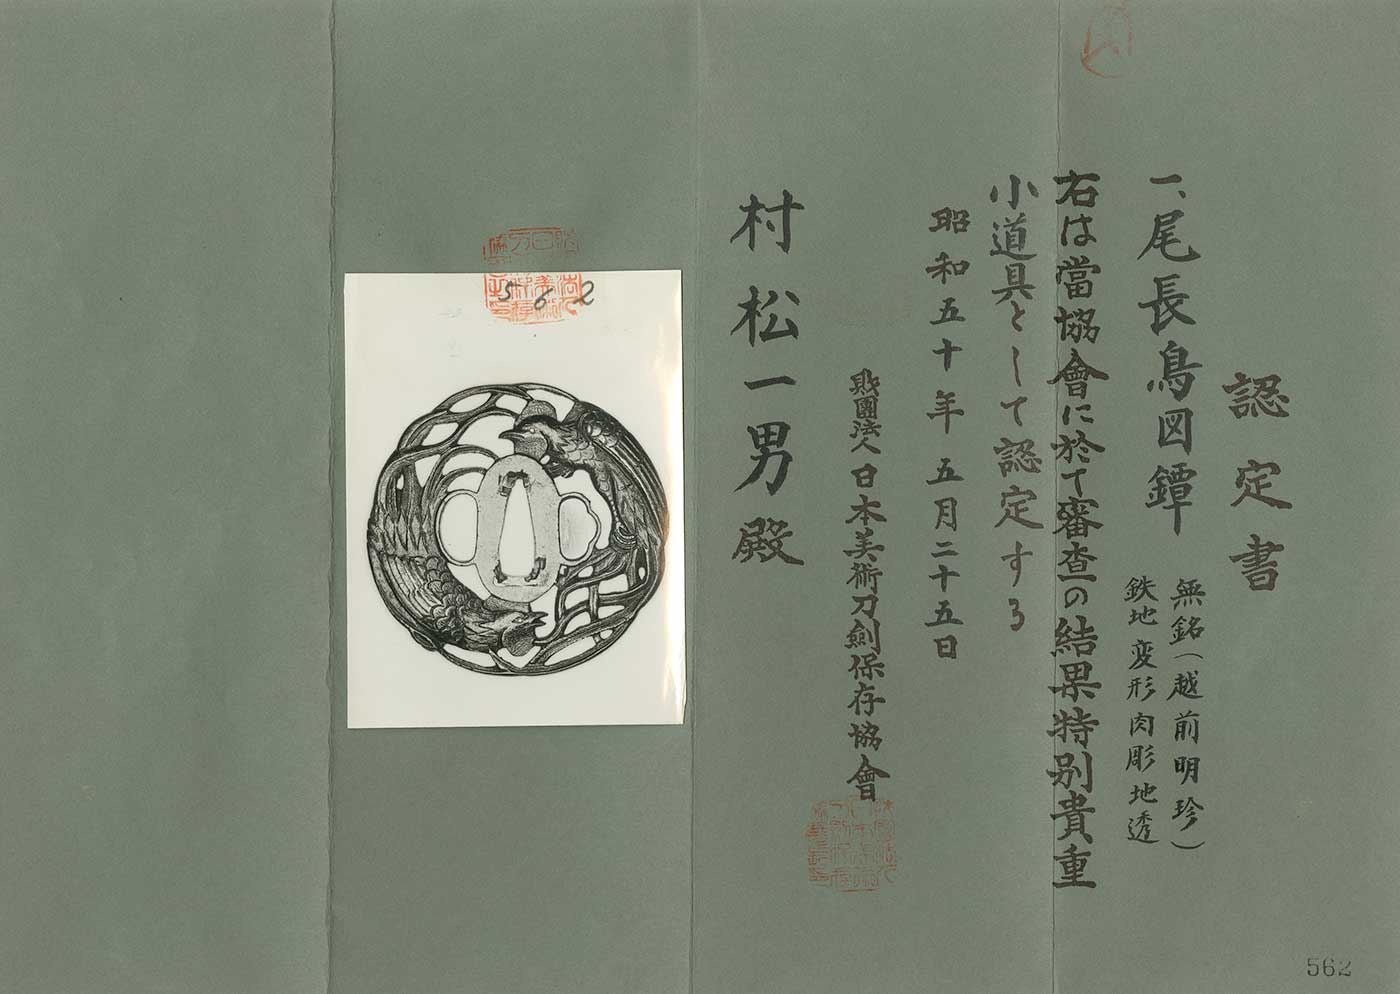 認定書
一、尾長鳥図鐔
無銘(越前明珍)
鉄地変形肉彫地透
右は當協會に於て審査の結果特別貴重
小道具として認定する
昭和五十年五月二十五日
財團法人日本美術刀劍保存協會
村松一男殿
562
562